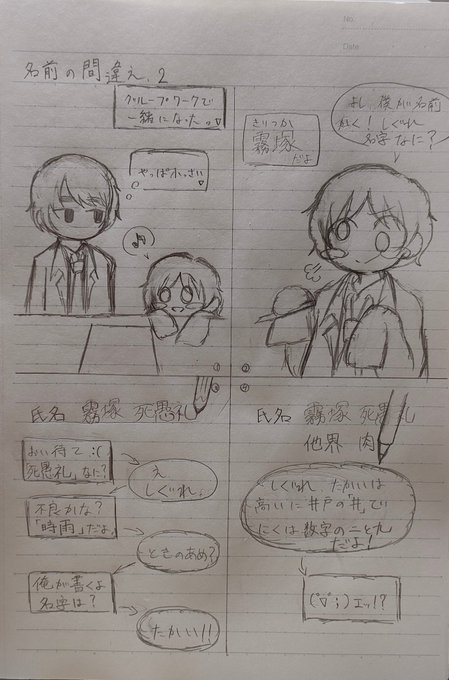 No.
Date
名前の間違え.2
グループワークで
一緒になたっo
やっぱ小っさい
よし、僕が名前
かく!しぐれ
名字なに?
きりつか
霧塚
だよ
①
②
③
④
氏名 霧塚 死愚礼
おい待て:(
死愚礼」なに?
え、
しぐれ、
不良かな?
「時雨」だよ
ときのあめ?
俺が書くよ
名字は?
たかい!!
氏名 霧塚 死愚礼
他界 肉
しぐれ、たかいは
高いに井戸の「井」で
にくは数字の二と九
だよ!
エッ!?